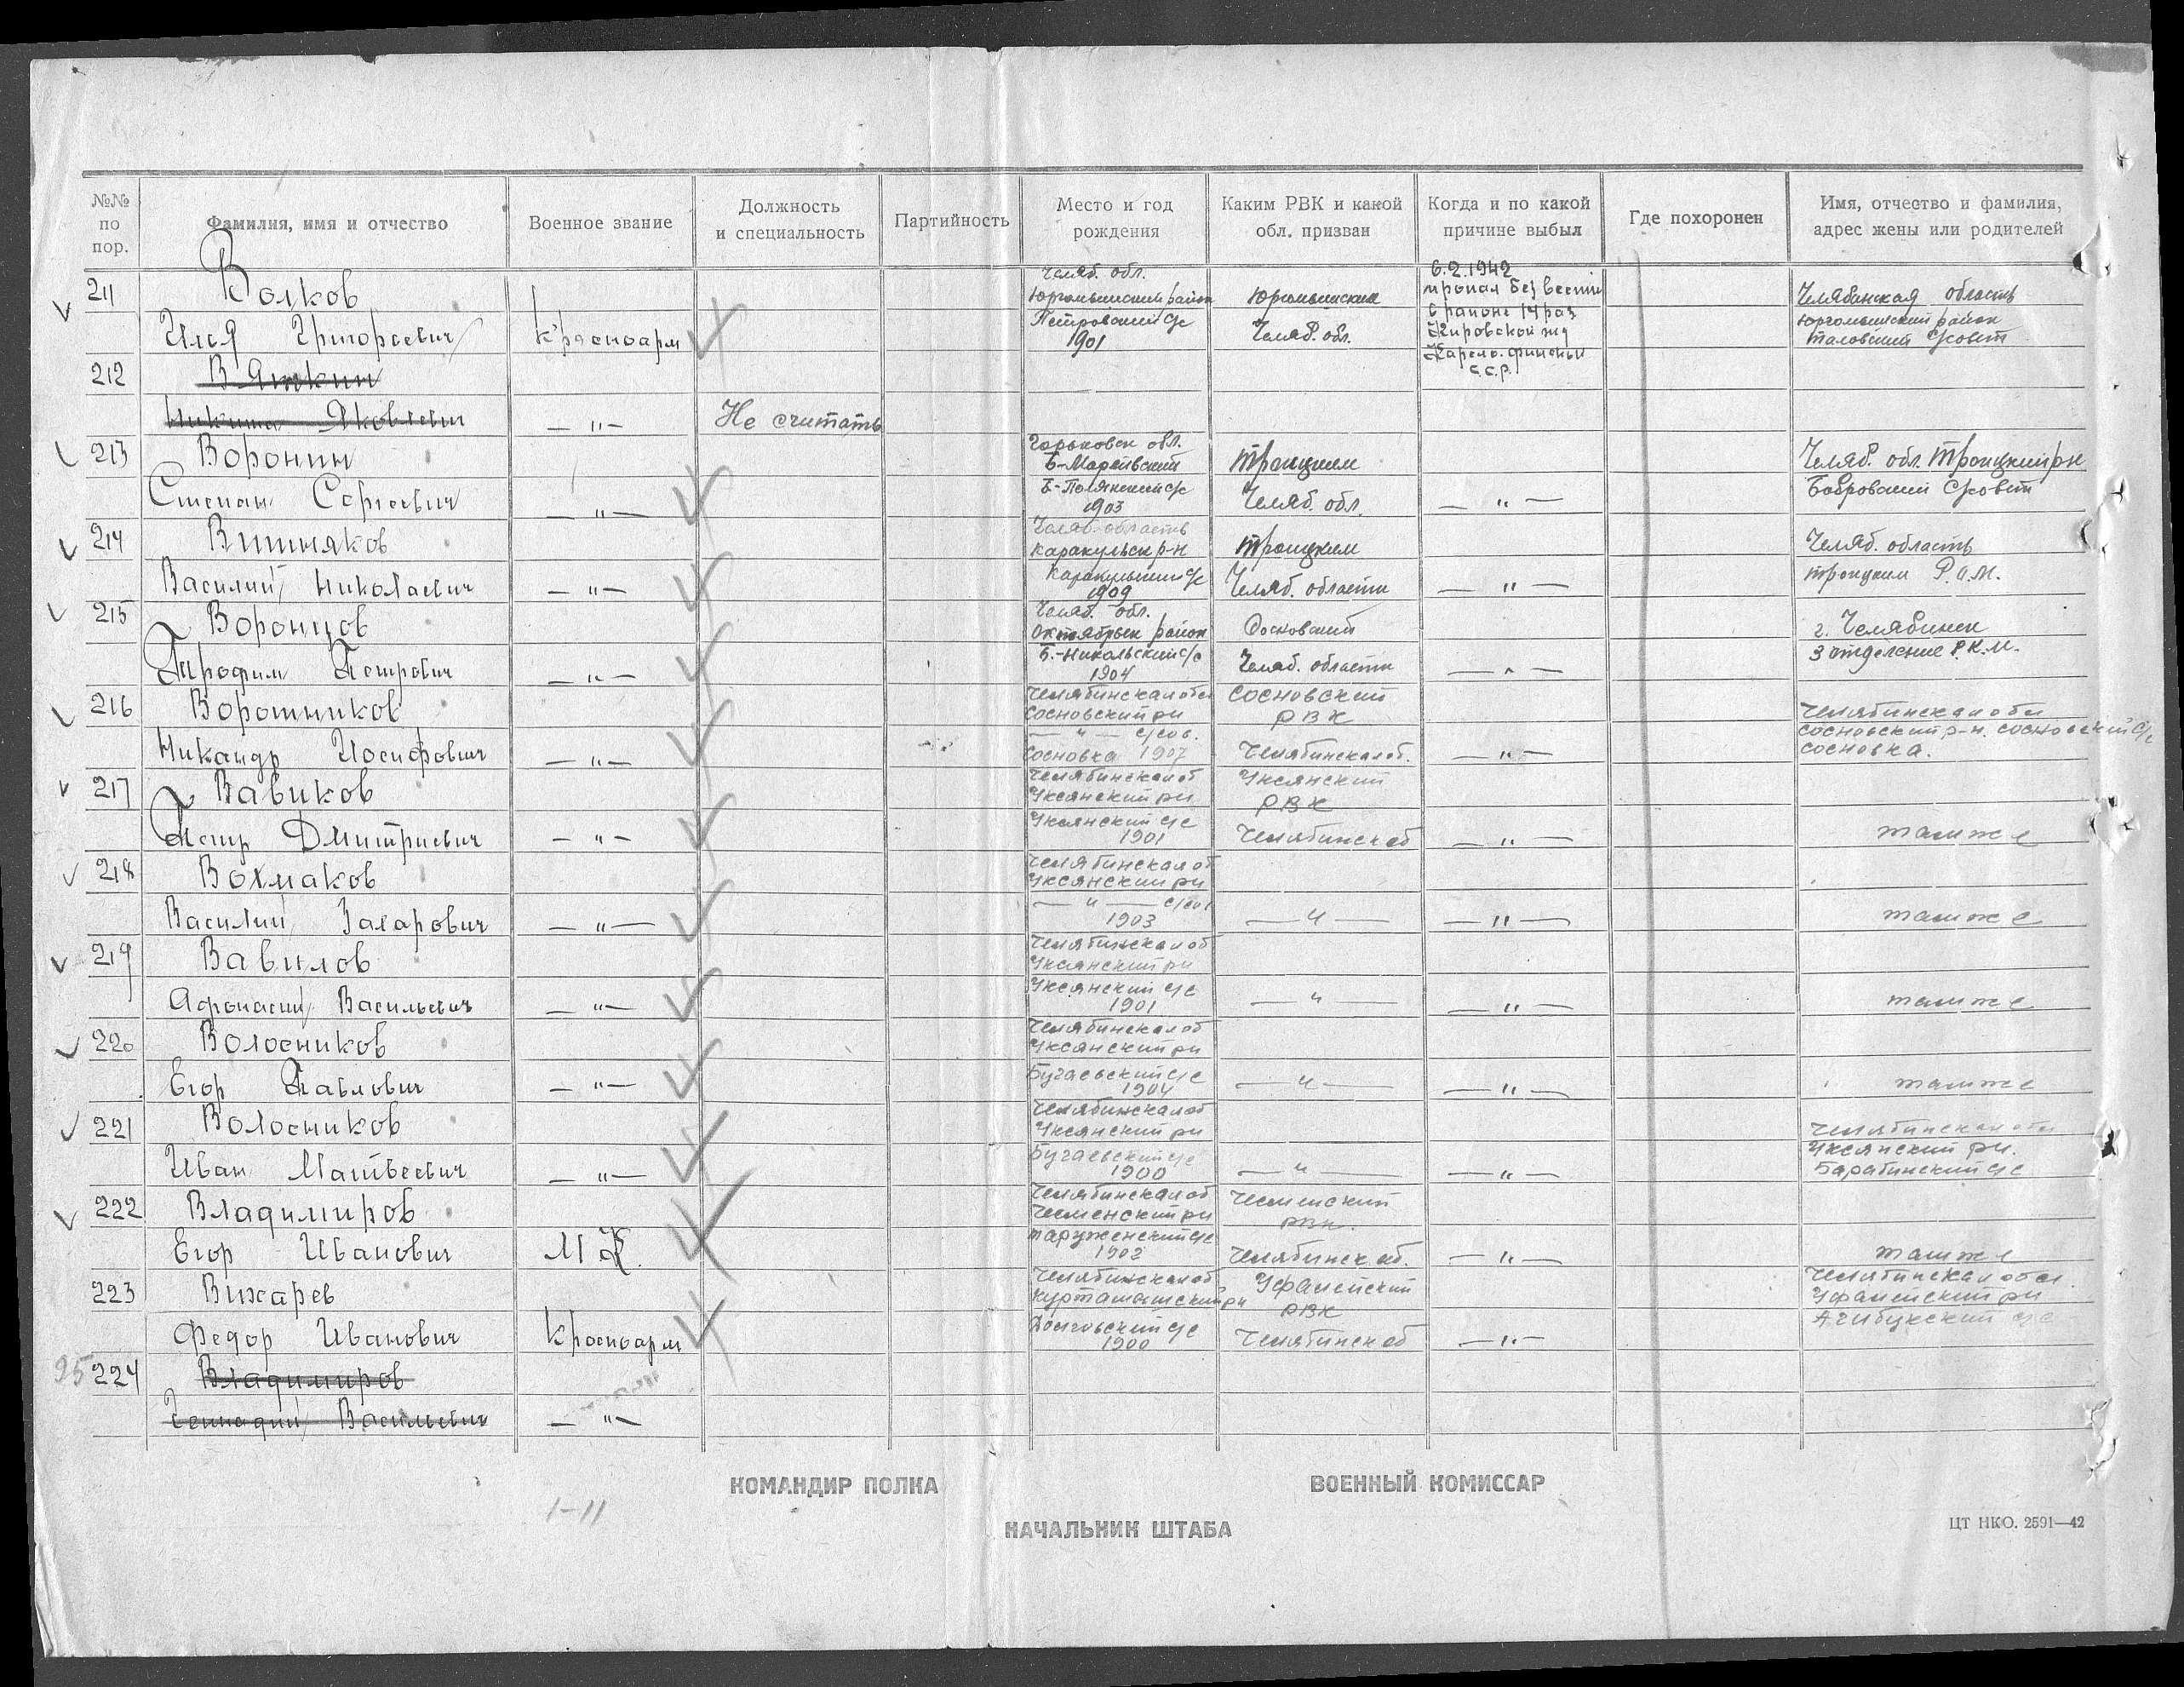 №№ по пор.
Фамилия, имя и отчество
Военное звание
Должность и специальность
Партийность
Место и год рождения
Каким РВК и какой обл. призван
Когда и по какой причине выбыл
Где похоронен
Имя, отчество и фамилия, адрес жены или родителей
211 Волков
Илья Григорьевич
Красноарм
Челяб. обл.
Юргамышский район
Петровский с/с
1901
Юргамышским
Челяб. обл.
6.2.1942
пропал без вести
в районе 14 раз.
Кировской жд
Карело-финской
С.С.Р.
Челябинская область
Юргамышский район
Таловский с/совет
212 Вяткин
Никита Яковлевич
— " —
Не считать
213 Воронин
Степан Сергеевич
— " —
Горьковск обл.
Б-Маресьвский
Б-Полянский с/с
1903
Троицким
Челяб. обл.
— " —
Челяб. обл. Троицкий рн
Бобровский с/совет
214 Вишняков
Василий Николаевич
— " —
Челяб. область
Каракульск р-н
Каракульский с/с
1909
Троицким
Челяб. области
— " —
Челяб. область
Троицким Р.О.М.
215 Воронцов
Трофим Петрович
— " —
Челяб. обл.
Октябрьск район
Б.-Никольский с/с
1904
Сосновский
Челяб. области
— " —
г. Челябинск
3 отделение Р.К.М.
216 Ворошников
Никандр Иосифович
— " —
Челябинская обл
Сосновский рн
— " — с/сов.
Сосновка 1907
Сосновский
РВК
Челябинская об.
— " —
Челябинская обл
Сосновский р-н. Сосновский с/с
Сосновка.
217 Вавиков
Петр Дмитриевич
— " —
Челябинская об
Уксянский рн
Уксянский с/с
1901
Уксянский
РВК
Челябинск об
— " —
там же
218 Вохмаков
Василий Захарович
— " —
Челябинская об
Уксянский рн
— " — с/сов
1903
— " —
— " —
там же
219 Вавилов
Афонасий Васильевич
— " —
Челябинская об
Уксянский рн
Уксянский с/с
1901
— " —
— " —
там же
220 Волосников
Егор Павлович
— " —
Челябинская об
Уксянский рн
Бугаевский с/с
1904
— " —
— " —
там же
221 Волосников
Иван Матвеевич
— " —
Челябинская об
Уксянский рн
Бугаевский с/с
1900
— " —
— " —
Челябинская обл
Уксянский рн.
Барабинский с/с
222 Владимиров
Егор Иванович
М К.
Челябинская об
Чесменский рн
Таруженский с/с
1902
Чесменский
РВК.
Челябинск об.
— " —
там же
223 Вихарев
Федор Иванович
Красноарм
Челябинская об
Куртамышский рн
Долговский с/с
1900
Уфалейский
РВК
Челябинск об
— " —
Челябинская обл.
Уфалейский рн
с/с
95 224 Владимиров
Геннадий Васильевич
— " —
КОМАНДИР ПОЛКА
ВОЕННЫЙ КОМИССАР
1-11
НАЧАЛЬНИК ШТАБА
ЦТ НКО. 2591—42